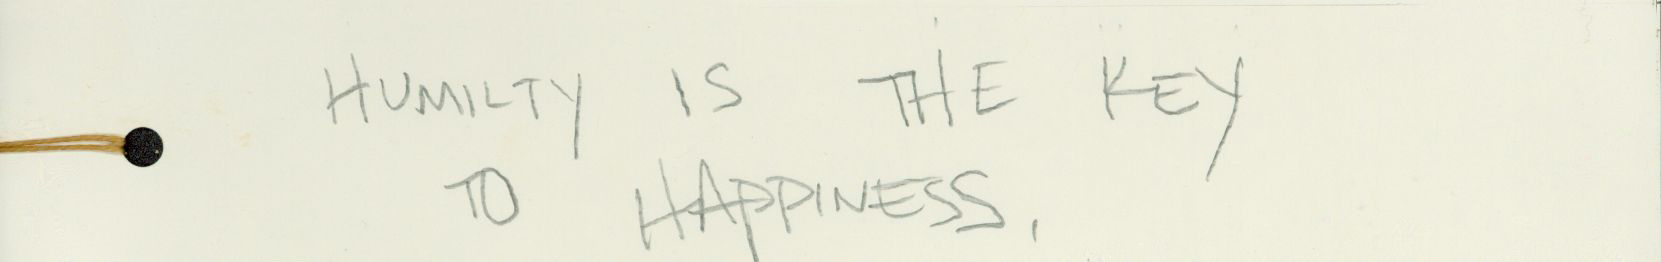 HUMILTY IS THE KEY
TO HAPPINESS.